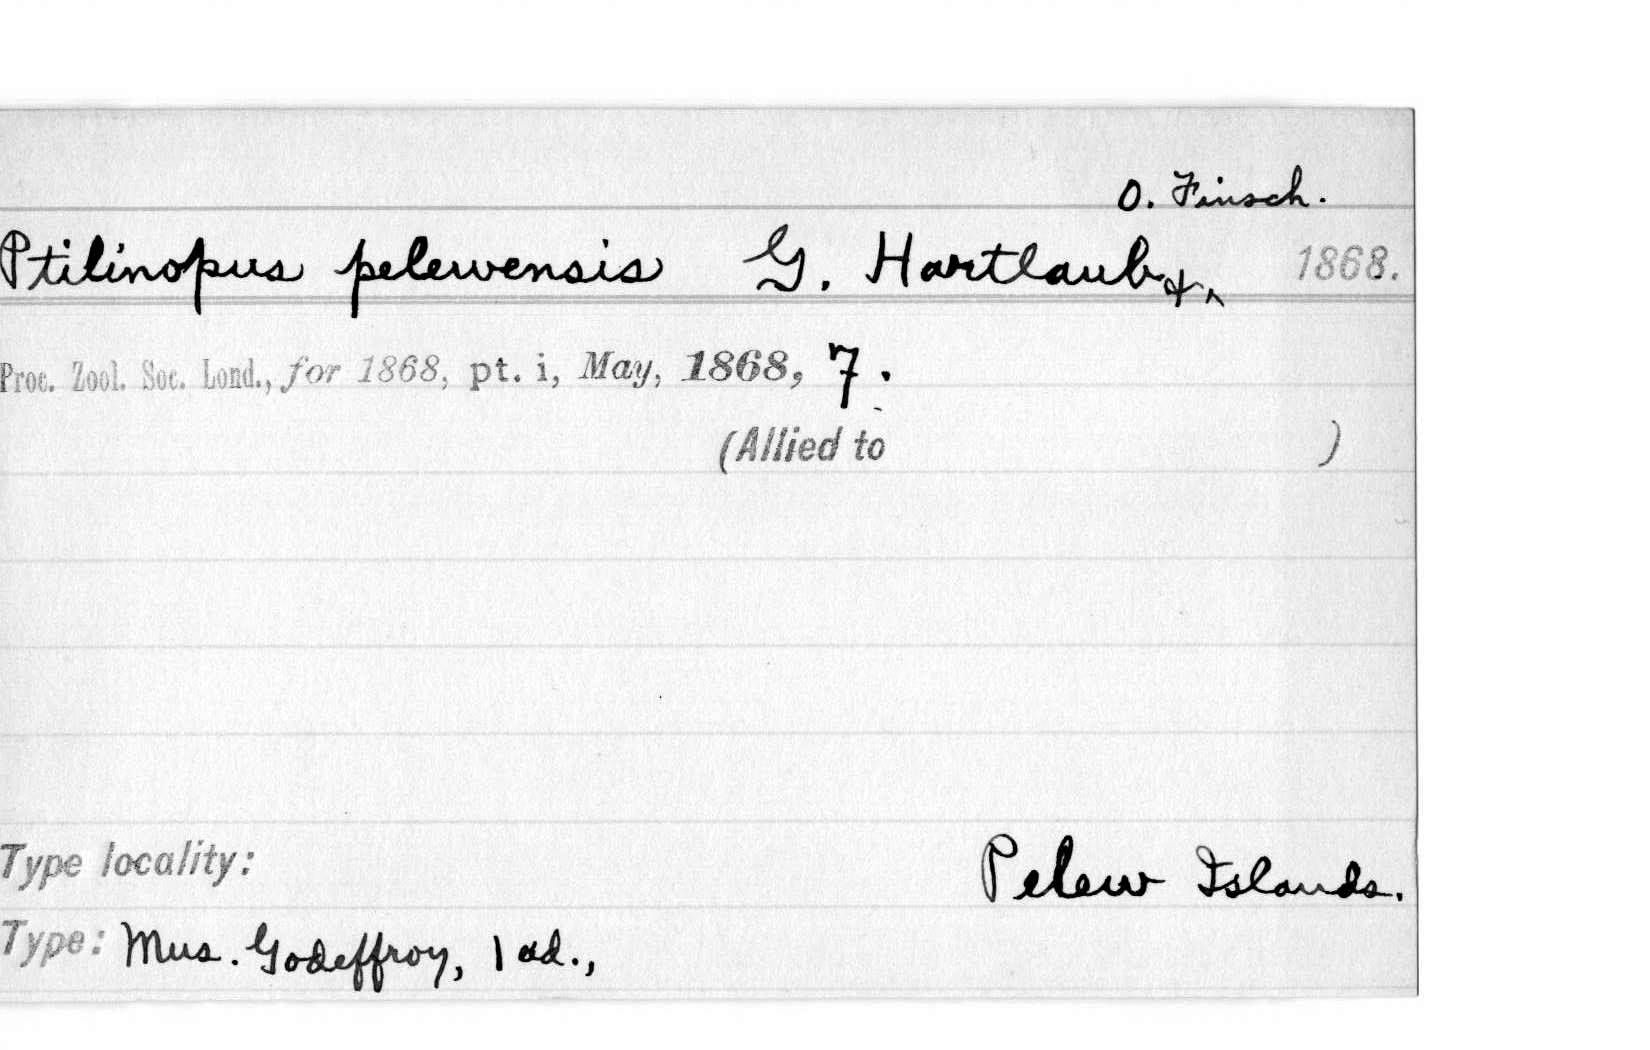 O. Finsch.
Ptilinopus pelewensis G. Hartlaub & ^ 1868.
Proc. Zool. Soc. Lond., for 1868, pt. i, May, 1868, 7.
(Allied to )
Type locality: Pelew Islands.
Type: Mus. Godeffroy, 1 ad.,